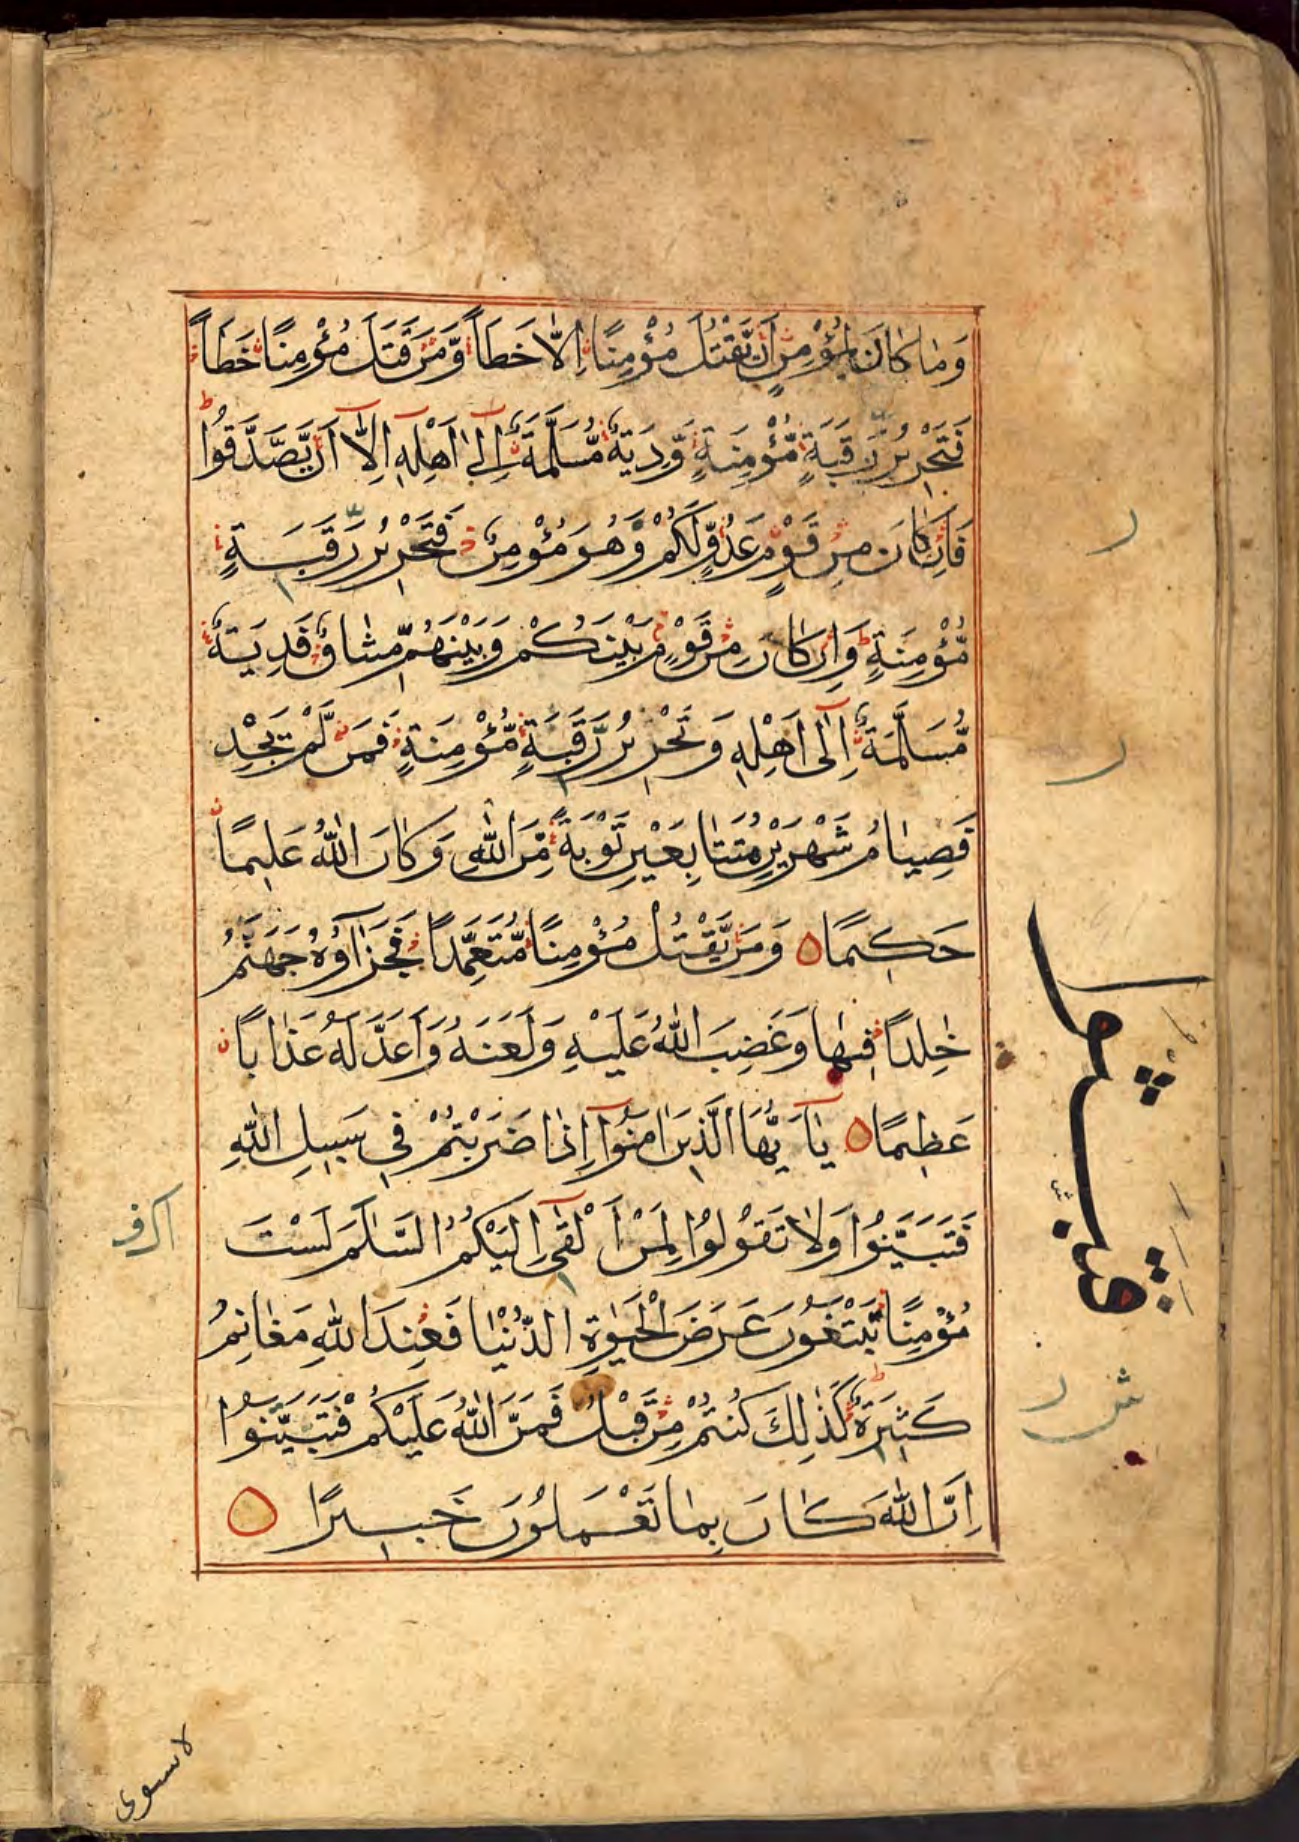 وَمَا كَانَ لِمُؤْمِنٍ اَنْ يَّقْتُلَ مُؤْمِنًا اِلَّا خَطَـًٔا وَّمَنْ قَتَلَ مُؤْمِنًا خَطَـًٔا
فَتَحْرِيْرُ رَقَبَةٍ مُّؤْمِنَةٍ وَّدِيَةٌ مُّسَلَّمَةٌ اِلٰٓى اَهْلِهٖ اِلَّآ اَنْ يَّصَّدَّقُوْا
فَاِنْ كَانَ مِنْ قَوْمٍ عَدُوٍّ لَّكُمْ وَهُوَ مُؤْمِنٌ فَتَحْرِيْرُ رَقَبَةٍ
مُّؤْمِنَةٍ وَاِنْ كَانَ مِنْ قَوْمٍ بَيْنَكُمْ وَبَيْنَهُمْ مِّيْثَاقٌ فَدِيَةٌ
مُّسَلَّمَةٌ اِلٰٓى اَهْلِهٖ وَتَحْرِيْرُ رَقَبَةٍ مُّؤْمِنَةٍ فَمَنْ لَّمْ يَجِدْ
فَصِيَامُ شَهْرَيْنِ مُتَتَابِعَيْنِ تَوْبَةً مِّنَ اللّٰهِ وَكَانَ اللّٰهُ عَلِيْمًا
حَكِيْمًا وَمَنْ يَّقْتُلْ مُؤْمِنًا مُّتَعَمِّدًا فَجَزَآؤُهٗ جَهَنَّمُ
خٰلِدًا فِيْهَا وَغَضِبَ اللّٰهُ عَلَيْهِ وَلَعَنَهٗ وَاَعَدَّ لَهٗ عَذَابًا
عَظِيْمًا يٰٓاَيُّهَا الَّذِيْنَ اٰمَنُوْٓا اِذَا ضَرَبْتُمْ فِيْ سَبِيْلِ اللّٰهِ
فَتَبَيَّنُوْا وَلَا تَقُوْلُوْا لِمَنْ اَلْقٰٓى اِلَيْكُمُ السَّلٰمَ لَسْتَ
مُؤْمِنًا تَبْتَغُوْنَ عَرَضَ الْحَيٰوةِ الدُّنْيَا فَعِنْدَ اللّٰهِ مَغَانِمُ
كَثِيْرَةٌ كَذٰلِكَ كُنْتُمْ مِّنْ قَبْلُ فَمَنَّ اللّٰهُ عَلَيْكُمْ فَتَبَيَّنُوْا
اِنَّ اللّٰهَ كَانَ بِمَا تَعْمَلُوْنَ خَبِيْرًا
ر
ر
ش ر
لا يستوى